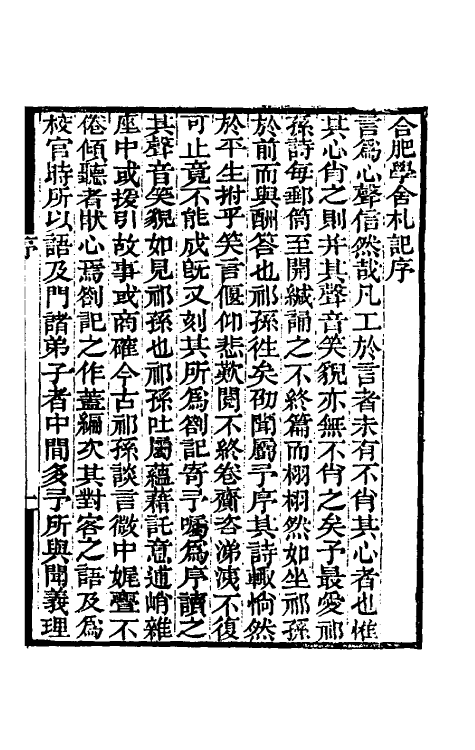 合肥學舍札記序
言爲心聲信然哉凡工於言者未有不肖其心者也惟
其心肖之則并其聲音笑貌亦無不肖之矣予最愛祁
孫詩每郵筒至開緘誦之不終篇而栩栩然如坐祁孫
於前而與酬答也祁孫徃矣劭聞屬予序其詩輒惝然
於平生拊乎笑言偃仰悲歎閱不終卷齎咨涕洟不復
可止竟不能成旣又刻其所爲劄記寄予囑爲序讀之
其聲音笑貌如見祁孫也祁孫吐屬蘊藉託意遒峭雜
座中或援引故事或商確今古祁孫談言微中娓亹不
倦傾聽者猒心焉劄記之作蓋編次其對客之語及爲
校官時所以語及門諸弟子者中間多予所與聞義理
序
一